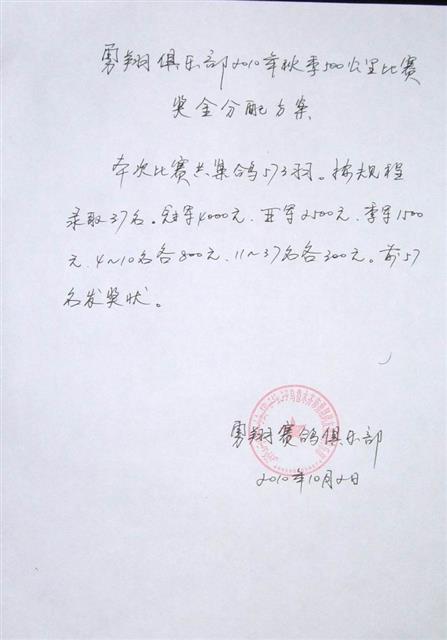 勇翔俱乐部2010年秋季500公里比赛
奖金分配方案
本次比赛共集鸽573羽。按规程
录取37名。冠军4000元、亚军2500元、季军1500
元、4~10名各800元、11~37名各300元。前57
名发奖状。
勇翔赛鸽俱乐部
2010年10月2日